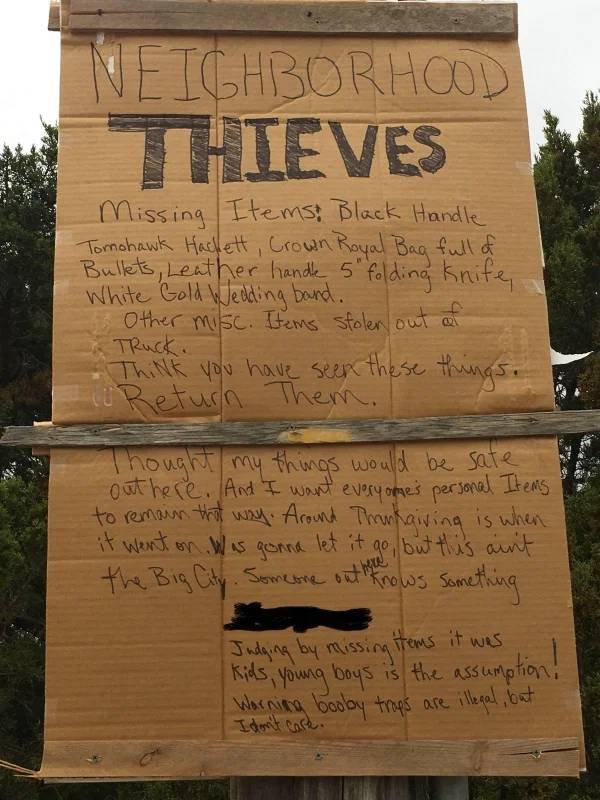 NEIGHBORHOOD
THIEVES
Missing Items: Black Handle
Tomohawk Hackett, Crown Royal Bag full of
Bullets, Leather handle 5" folding Knife,
White Gold Wedding band.
Other misc. Items stolen out of
TRuck.
ThiNK you have seen these things.
Return Them.
Thought my things would be safe
out here. And I want everyone's personal Items
to remain that way. Around Thankgiving is when
it went on. Was gonna let it go, but this aint
the Big City. Someone out here knows something
Judging by missing items it was
Kids, young boys is the assumption!
Warning booby traps are illegal, but
I don't care.